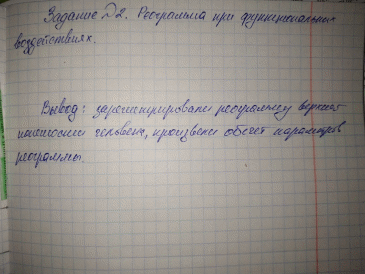 Задание №2. Реограмма при функциональных
воздействиях.
Вывод: зарегистрировали реограмму верхней
конечности человека, произвели обсчет параметров
реограммы.